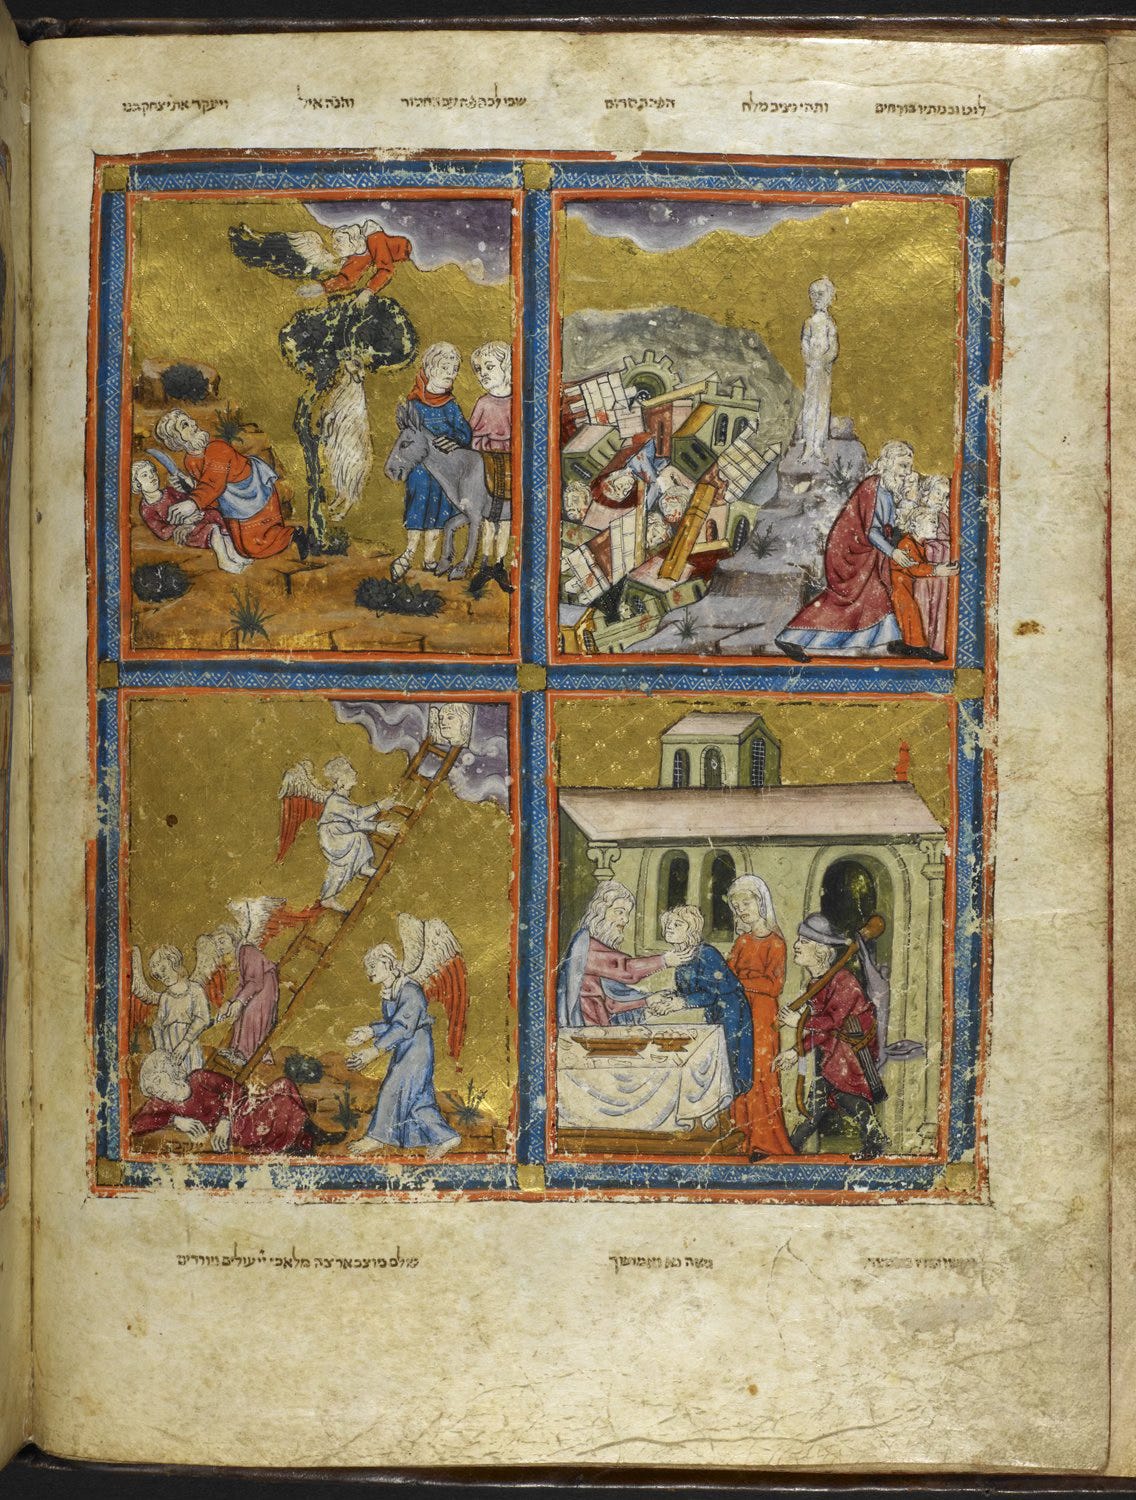 לוט ובנתיו בורחים ותהי נציב מלח הפיכת סדום שבו לכם פה עם החמור והנה איל ויעקד את יצחק בנו
גשה נא ואמושך סלם מוצב ארצה מלאכי יי עולים ויורדים